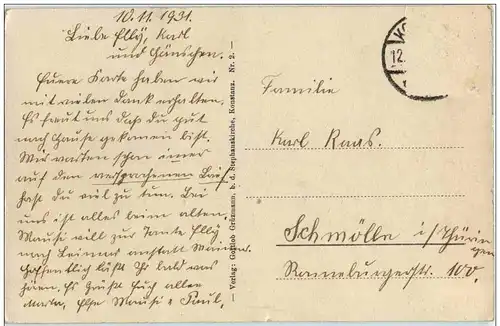 10.11.1931.
Liebe Elly, Karl
und Hänschen.
Euere Karte haben wir
mit vielen Dank erhalten.
Es freut uns daß du gut
nach Hause gekommen bist.
Wir warten schon immer
auf den versprochenen Brief
hast du viel zu tun. Bei
uns ist alles beim alten.
Mausi will zur Tante Elly
nach anstatt
Hoffentlich läßt Ihr bald was
hören. Es Grüßt Euch alle
Mausi & Paul,
— Verlag: Gottlob Grüzmann, b. d. Stephanskirche, Konstanz. Nr. 2. —
12.
Familie
Karl Raas.
Schmölln i/Thürin
gen
Ronneburgerstr. 100.